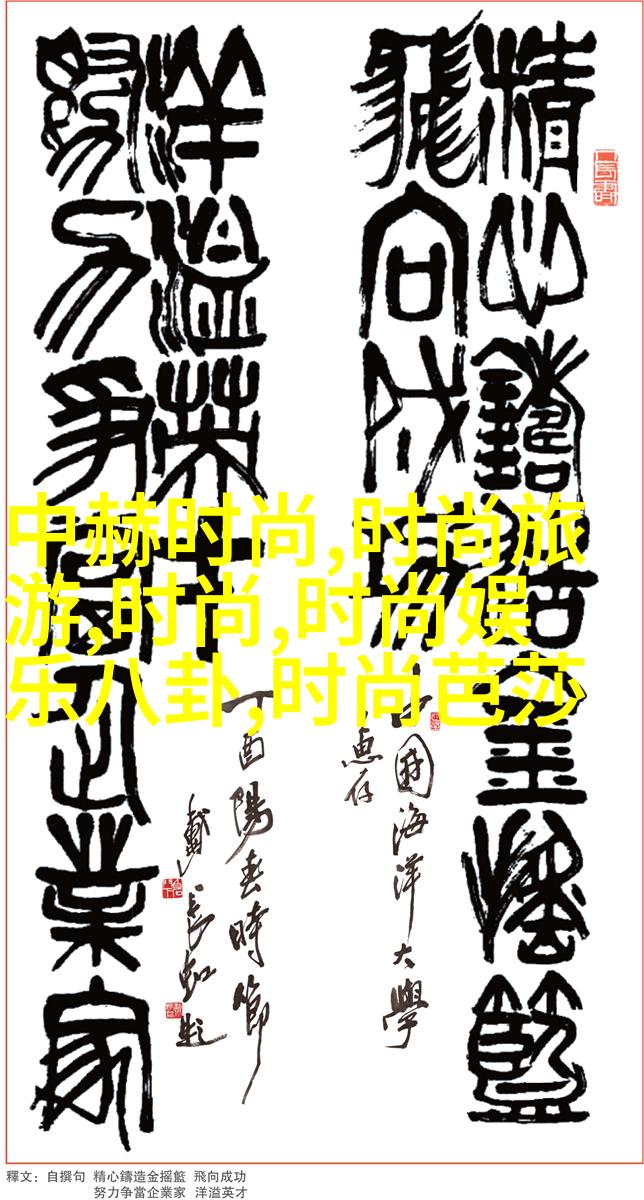 精心鑄造金搖籃
飛向成功
中國海洋大學
惠存
洋溢英才
努力爭當企業家
丁酉陽春時節
戴長虹題
中赫时尚,时尚旅
游,时尚,时尚娱
乐八卦,时尚芭莎
釋文：自撰句 精心鑄造金摇籃 飛向成功
努力争當企業家 洋溢英才